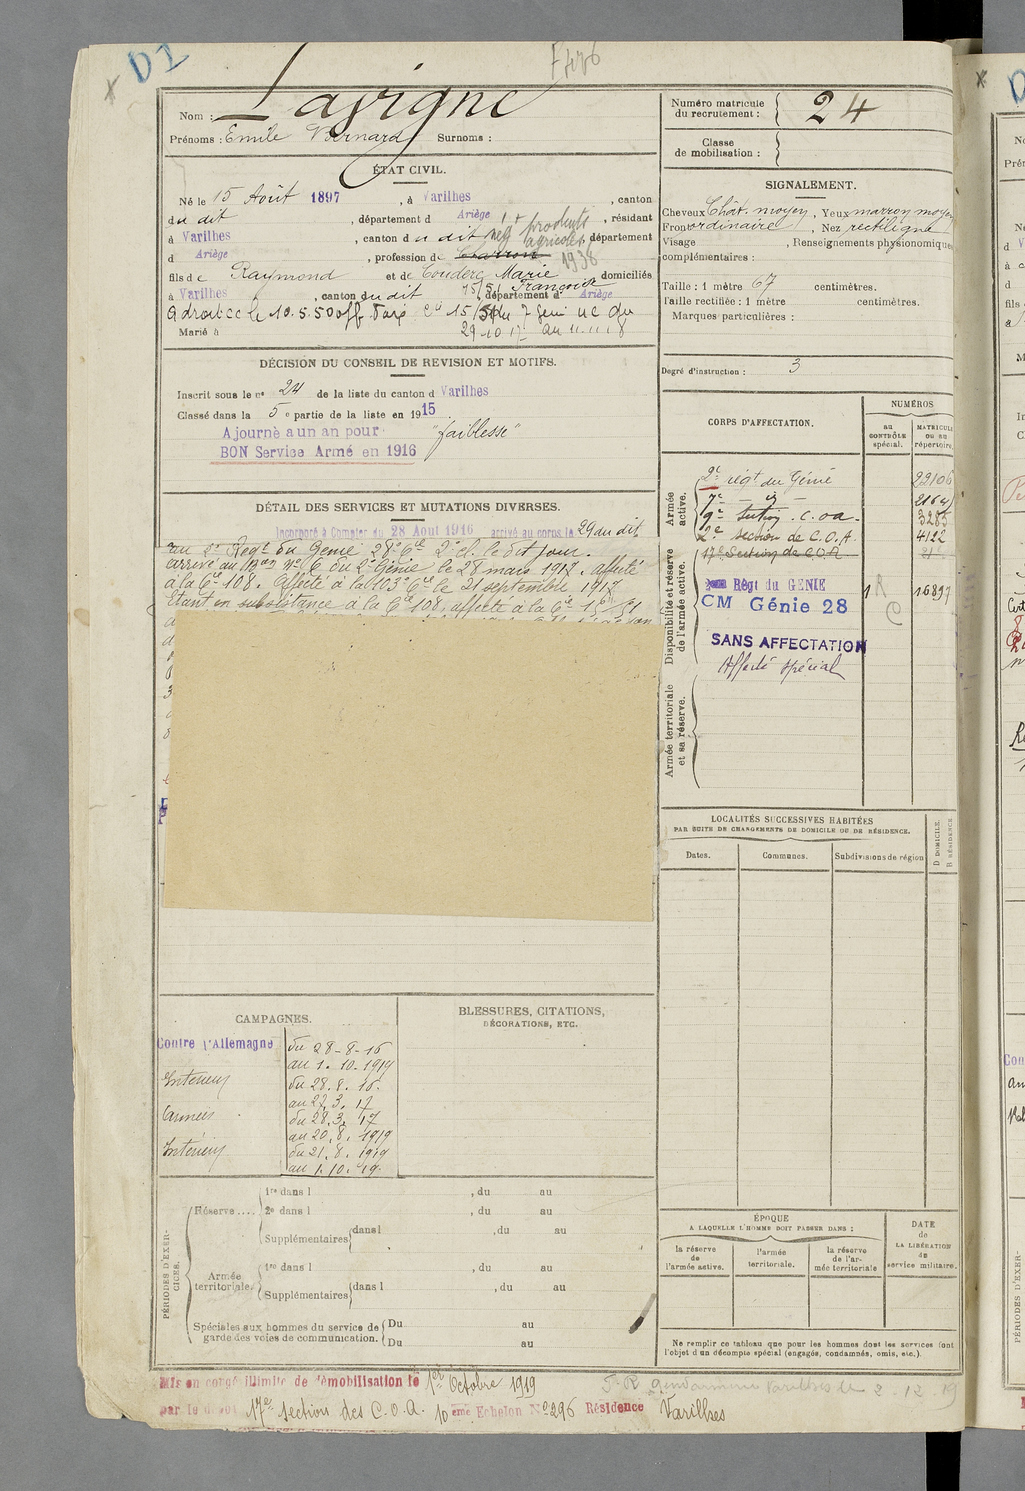 D1
Nom : Lavigne
Prénoms : Emile Bernard Surnoms :
ÉTAT CIVIL.
Né le 15 Août 1897, à Varilhes, canton
du dit, département d Ariège, résidant
à Varilhes, canton du dit neg t produits agricoles, département
d Ariège, profession de Charron 1938
fils de Raymond et de Couderc Marie Françoise domiciliés
à Varilhes, canton du dit, département d Ariège
a droit CC le 10.5.50 du 7 Genie
29-10-17 au 11.11.18
Marié à
DÉCISION DU CONSEIL DE REVISION ET MOTIFS.
Inscrit sous le n° 24 de la liste du canton d Varilhes
Classé dans la 5e partie de la liste en 1915
Ajourné a un an pour "faiblesse"
BON Service Armé en 1916
DÉTAIL DES SERVICES ET MUTATIONS DIVERSES.
Incorporé à Compter du 28 Aout 1916 arrivé au corps le 29 du dit
au 2e Régt du Génie 28e Cie 2e cl. le dit jour.
arrivé au Bon M/6 du 2e Génie le 28 mars 1917. affecté
à la Cie 108. Affecté à la 103e Cie le 21 septembre 1917
Etant en subsistance à la Cie 108, affecté à la Cie
CAMPAGNES.
Contre l'Allemagne du 28-8-16
au 1.10.1919
Intérieur du 28.8.16.
au 27.3.17
Armées du 28.3.17
au 20.8.1919
Intérieur du 21.8.1919
au 1.10.19.
BLESSURES, CITATIONS,
DÉCORATIONS, ETC.
PÉRIODES D'EXERCICES.
Réserve ....
1re dans l , du au
2e dans l , du au
Supplémentaires dans l , du au
Armée territoriale.
1re dans l , du au
Supplémentaires dans l , du au
Spéciales aux hommes du service de garde des voies de communication.
Du au
Du au
Mis en congé illimité de démobilisation le 1er Octobre 1919
par le dépôt 17e section des C.O.A. 10 eme Echelon N° 296 Résidence Varilhes
F. R. gendarmerie Varilhes le 2.12.19
Numéro matricule
du recrutement : 24
Classe
de mobilisation :
SIGNALEMENT.
Cheveux Chât. moyen, Yeux marron moyen
Front ordinaire, Nez rectiligne
Visage , Renseignements physionomiques
complémentaires :
Taille : 1 mètre 67 centimètres.
Taille rectifiée : 1 mètre centimètres.
Marques particulières :
Degré d'instruction : 3
CORPS D'AFFECTATION.
NUMÉROS
au CONTRÔLE spécial.
MATRICULE ou au répertoire.
Armée active.
2e régt du Génie 22106
7e — id —
9e section C.O.A. 3285
2e section de C.O.A. 4122
17e Section de C.O.A.
Disponibilité et réserve de l'armée active.
Régt du GENIE 16897
CM Génie 28
SANS AFFECTATION
Affecté spécial
Armée territoriale et sa réserve.
LOCALITÉS SUCCESSIVES HABITÉES
PAR SUITE DE CHANGEMENTS DE DOMICILE OU DE RÉSIDENCE.
Dates. Communes. Subdivisions de région
D DOMICILE.
R RÉSIDENCE.
ÉPOQUE
A LAQUELLE L'HOMME DOIT PASSER DANS :
la réserve de l'armée active.
l'armée territoriale.
la réserve de l'armée territoriale
DATE
de
LA LIBÉRATION
du
service militaire.
Ne remplir ce tableau que pour les hommes dont les services font
l'objet d'un décompte spécial (engagés, condamnés, omis, etc.).